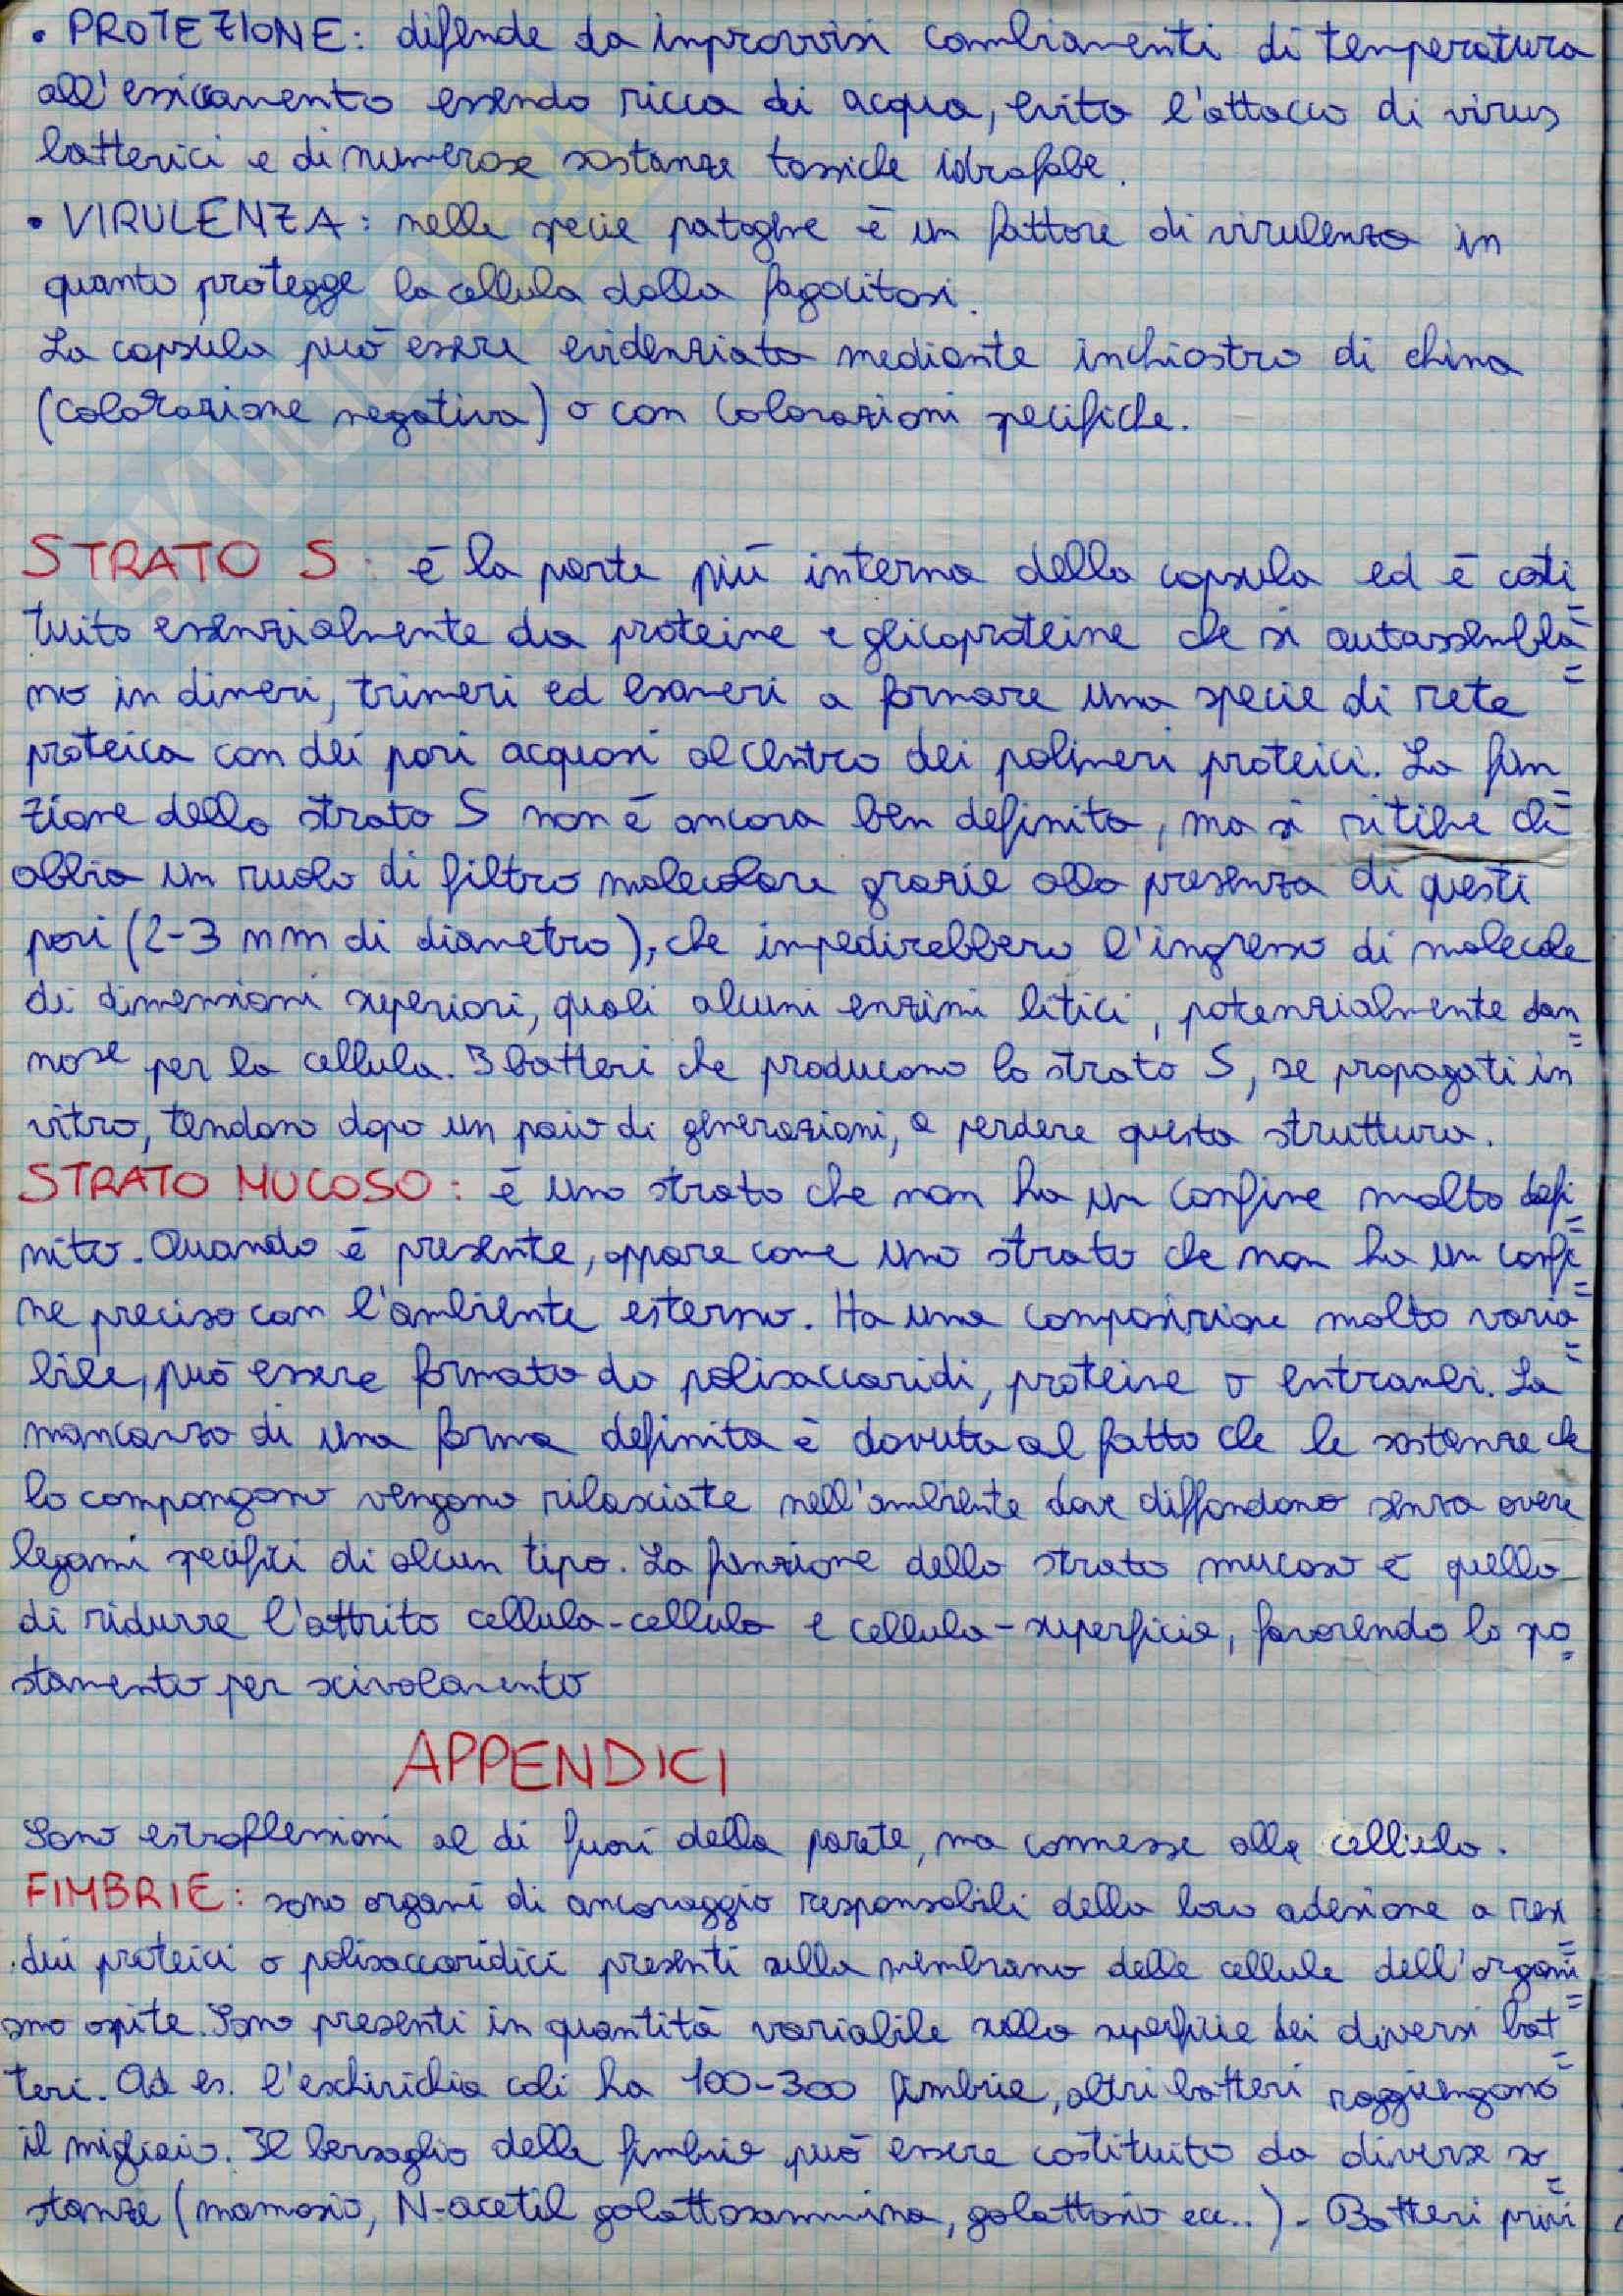 • PROTEZIONE: difende da improvvisi cambiamenti di temperatura
all'essiccamento essendo ricca di acqua, evita l'attacco di virus
batterici e di numerose sostanze tossiche idrofobe.
• VIRULENZA: nelle specie patogene è un fattore di virulenza in
quanto protegge la cellula dalla fagocitosi.
La capsula può essere evidenziata mediante inchiostro di china
(colorazione negativa) o con colorazioni specifiche.
STRATO S: è la parte più interna della capsula ed è costi
tuito essenzialmente da proteine e glicoproteine che si autoassembla=
no in dimeri, trimeri ed esameri a formare una specie di rete
proteica con dei pori acquosi al centro dei polimeri proteici. La fun=
zione dello strato S non è ancora ben definita, ma si ritiene che
abbia un ruolo di filtro molecolare grazie alla presenza di questi
pori (2-3 nm di diametro), che impedirebbero l'ingresso di molecole
di dimensioni superiori, quali alcuni enzimi litici, potenzialmente dan=
nose per la cellula. I batteri che producono lo strato S, se propagati in
vitro, tendono dopo un paio di generazioni, a perdere questa struttura.
STRATO MUCOSO: è uno strato che non ha un confine molto defi=
nito. Quando è presente, appare come uno strato che non ha un confi=
ne preciso con l'ambiente esterno. Ha una composizione molto varia=
bile, può essere formato da polisaccaridi, proteine o entrambi. La
mancanza di una forma definita è dovuta al fatto che le sostanze che
lo compongono vengono rilasciate nell'ambiente dove diffondono senza avere
legami specifici di alcun tipo. La funzione dello strato mucoso è quella
di ridurre l'attrito cellula-cellula e cellula-superficie, favorendo lo spo=
stamento per scivolamento
APPENDICI
Sono estroflessioni al di fuori della parete, ma connesse alla cellula.
FIMBRIE: sono organi di ancoraggio responsabili della loro adesione a resi=
dui proteici o polisaccaridici presenti sulla membrana delle cellule dell'organi=
smo ospite. Sono presenti in quantità variabile sulla superficie dei diversi bat=
teri. Ad es. l'eschirichia coli ha 100-300 fimbrie, altri batteri raggiungono
il migliaio. Il bersaglio delle fimbrie può essere costituito da diverse so=
stanze (mannosio, N-acetil galattosammina, galattosio ecc..). Batteri privi